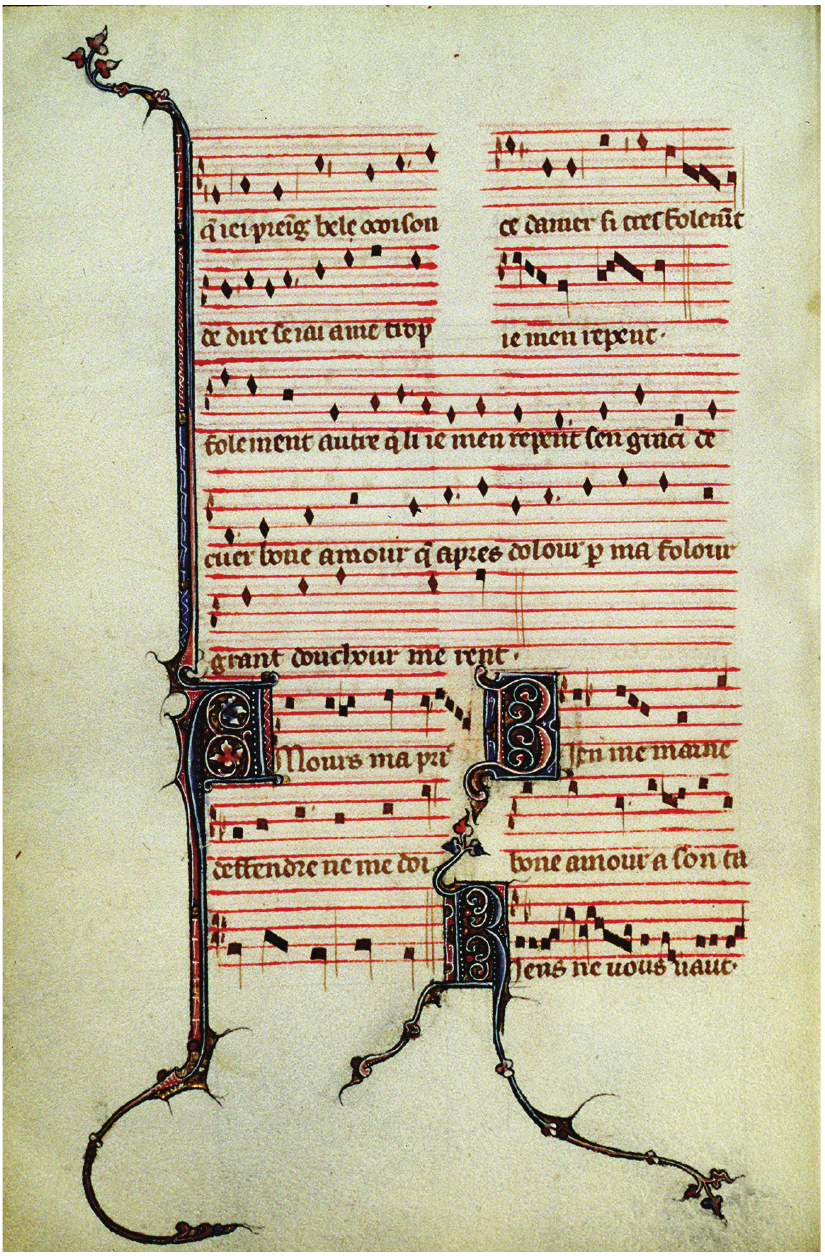 bele
ce damer si tres folemt
de dire serai ame trop
ie men repent·
folement autre qli ie men repent sen ginci de
cuer bone amour q apres dolour p ma folour
grant douchour me rent·
Amours ma pri
Bien me maine
deffendre ne me doi
bone amour a son ta
Riens ne vous vaut·